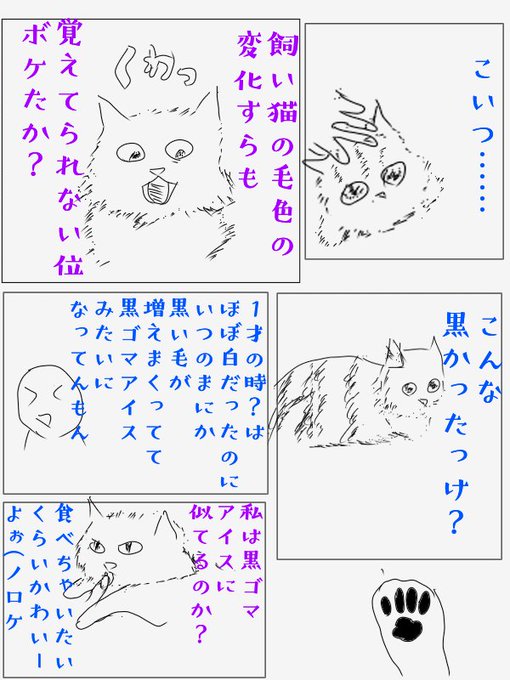 こいつ……
飼い猫の毛色の
変化すらも
くわっ
覚えてられない位
ボケたか？
こんな
黒かったっけ？
1才の時？は
ほぼ白だったのに
いつのまにか
黒い毛が
増えまくってて
黒ゴマアイス
みたいに
なってんもん
私は黒ゴマ
アイスに
似てるのか？
食べちゃいたい
くらいかわいー
よぉ(ノロケ